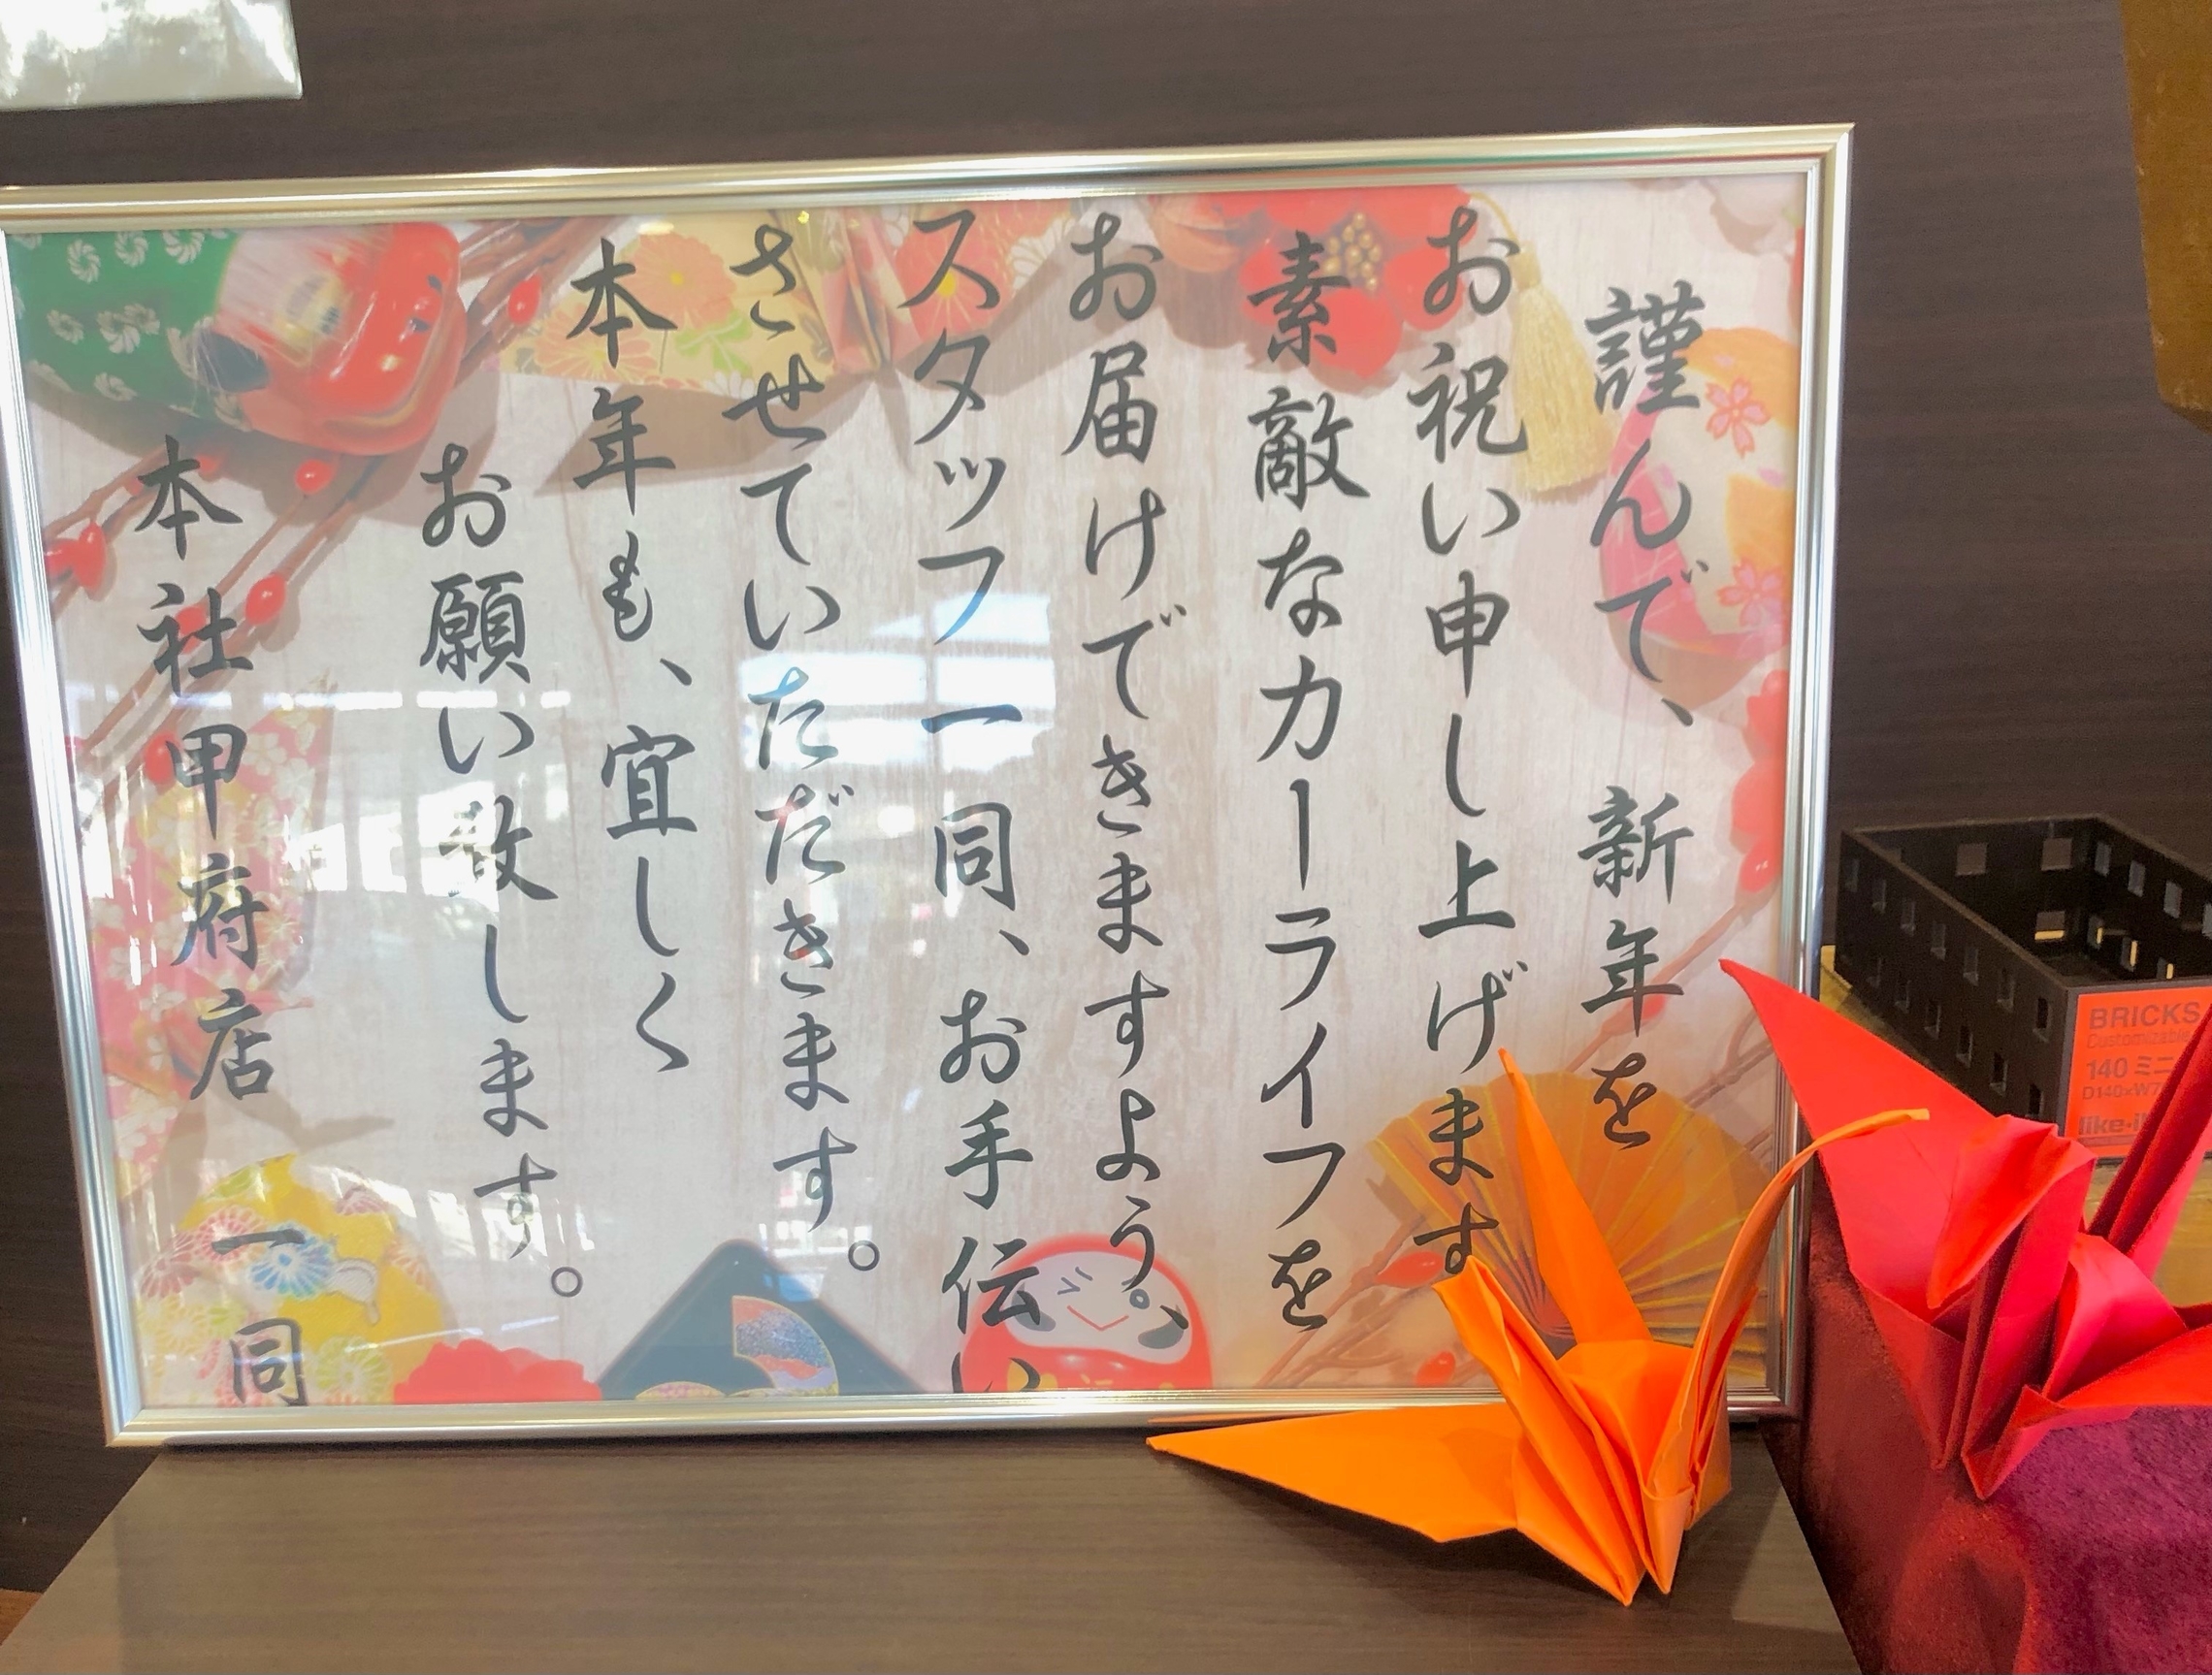 謹んで、新年を
お祝い申し上げます
素敵なカーライフを
お届けできますよう。、
スタッフ一同、お手伝い
させていただきます。
本年も、宜しく
お願い致します。
本社甲府店一同
BRICKS
Customizable
140 ミニ
D140×W7
like-i